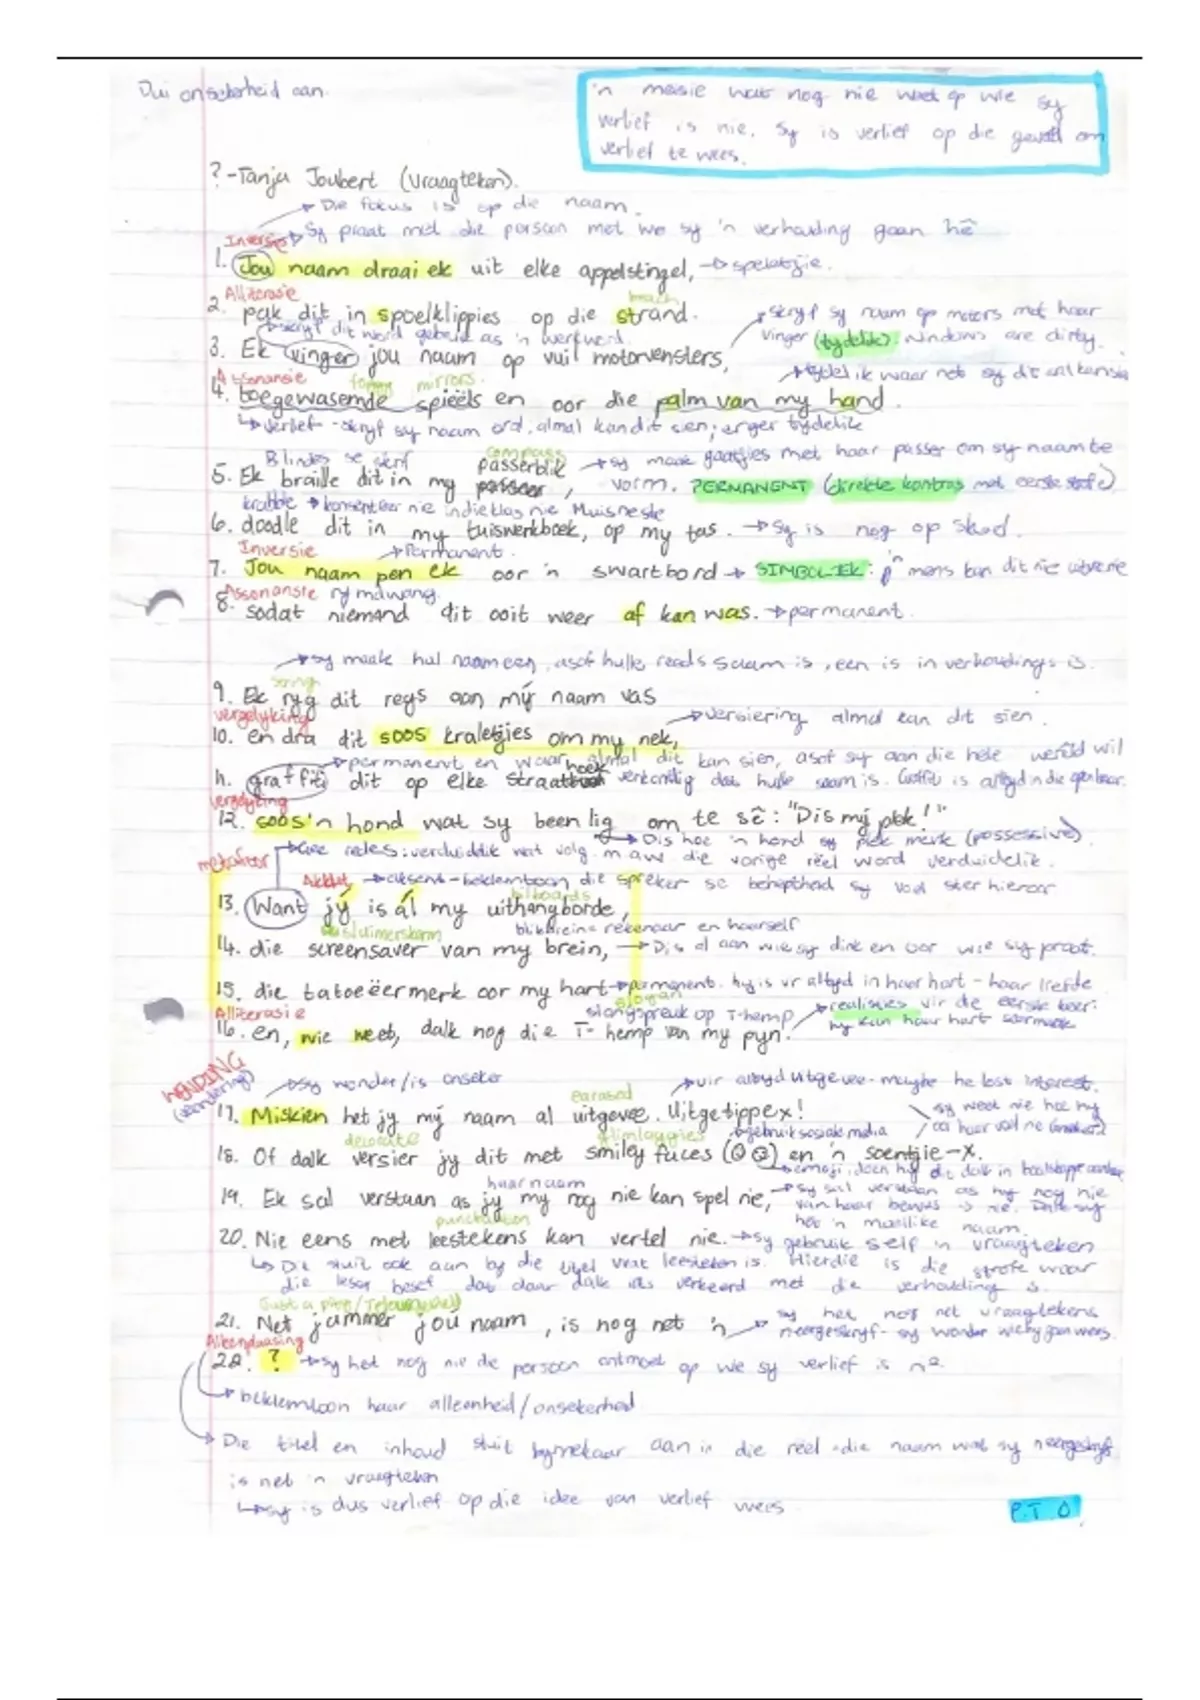 Dui onsekerheid aan.
'n meisie wat nog nie weet op wie sy
verlief is nie. Sy is verlief op die gevoel om
verlief te wees.
? - Tanja Joubert (Vraagteken).
Die fokus is op die naam.
Sy praat met die persoon met wie sy 'n verhouding gaan hê
Inversie
1. Jou naam draai ek uit elke appelstingel, → speletjie.
Alliterasie
beach
2. pak dit in spoelklippies op die strand.
skryf sy naam op motors met haar
vinger (tydelik). Windows are dirty.
skryf dit word gebruik as 'n werkword.
3. Ek vinger jou naam op vuil motorvensters,
tydelik waar net sy dit kan sien
Assonansie
foggy mirrors.
4. toegewasemde spieëls en oor die palm van my hand.
verlief - skryf sy naam oral, almal kan dit sien; erger tydelik
Blindes se skrif
compass
5. Ek braille dit in my passerblik,
sy maak gaatjies met haar passer om sy naam te
vorm. PERMANENT (direkte kontras met eerste strofe)
krabbel → konsentreer nie in die klas nie
6. doodle dit in my tuiswerkboek, op my tas. → Sy is nog op skool.
Inversie
→ Permanent.
7. Jou naam pen ek oor 'n swartbord → SIMBOLIEK: 'n mens kan dit nie uitvee nie
Assonansie rymdwang.
8. sodat niemand dit ooit weer af kan was. → permanent.
→ sy maak hul naam een, asof hulle reeds saam is, een is in verhoudings is.
string
9. Ek ryg dit regs aan mý naam vas
vergelyking
→ versiering almal kan dit sien.
10. en dra dit soos kraletjies om my nek,
→ permanent en waar almal dit kan sien, asof sy aan die hele wêreld wil
11. graffiti dit op elke straathoek
verkondig dat hulle saam is. Graffiti is altyd in die openbaar.
vergelyking
12. soos 'n hond wat sy been lig om te sê: "Dis mý plek!"
→ Dis hoe 'n hond sy plek merk (possessive)
Gee redes: verduidelik wat volg. m.a.w die vorige reël word verduidelik.
metafoor
Akuut → aksent - beklemtoon die spreker se behoefheid sy voel sterk hieroor
billboards
13. Want jý is ál my uithangborde,
blikbrein = rekenaar en haarself
sluimerskerm
14. die screensaver van my brein, → Dis al aan wie sy dink en oor wie sy praat.
15. die tatoeëermerk oor my hart → permanent. hy is vir altyd in haar hart - haar liefde
Alliterasie
slogan
slagspreuk op T-hemp
→ realisties vir die eerste keer:
hy kan haar hart seermaak
16. en, wie weet, dalk nog die T-hemp van my pyn.
WENDING
(verandering)
→ sy wonder/is onseker
→ vir altyd uitgevee - maybe he lost interest.
earased
17. Miskien het jy mý naam al uitgevee. Uitgetippex!
sy weet nie hoe hy
oor haar voel nie (onseker)
decorate
glimlaggies
→ gebruik sosiale media
18. Of dalk versier jy dit met smiley faces (☺☺) en 'n soentjie - x.
→ emoji, doen hy dit dalk in boodskappe
haar naam
19. Ek sal verstaan as jy my nog nie kan spel nie,
→ sy sal verstaan as hy nog nie
van haar bewus is nie. Dalk sy
het 'n moeilike naam.
punctuation
20. Nie eens met leestekens kan vertel nie. → sy gebruik self 'n vraagteken
↳ Dit sluit ook aan by die titel wat leesteken is. Hierdie is die strofe waar
die leser besef dat daar dalk iets verkeerd met die verhouding is.
Just a pity/Teleurgesteld
21. Net jammer joú naam, is nog net 'n
→ sy het nog net vraagtekens
neergeskryf - sy wonder wie hy gaan wees
Alleenplasing
22. ? → sy het nog nie die persoon ontmoet op wie sy verlief is nie.
→ beklemtoon haar alleenheid/onsekerheid
→ Die titel en inhoud sluit bymekaar aan in die reël - die naam wat sy neergeskryf
is net 'n vraagteken
↳ sy is dus verlief op die idee van verlief wees.
P.T.O